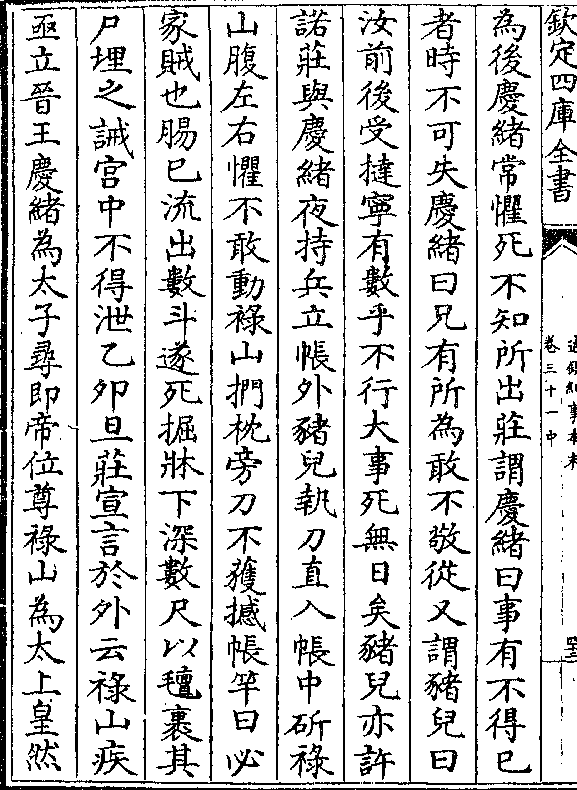 欽定四庫全書
通鑑紀事本末
卷三十一中
為後慶緒常懼死不知所出莊謂慶緒曰事有不得已
者時不可失慶緒曰兄有所為敢不敬從又謂豬兒曰
汝前後受撻寧有數乎不行大事死無日矣豬兒亦許
諾莊與慶緒夜持兵立帳外豬兒執刀直入帳中斫祿
山腹左右懼不敢動祿山捫枕旁刀不獲撼帳竿曰必
家賊也腸已流出數斗遂死掘牀下深數尺以氊裹其
尸埋之誡宮中不得泄乙夘旦莊宣言於外云祿山疾
亟立晉王慶緒為太子尋即帝位尊祿山為太上皇然